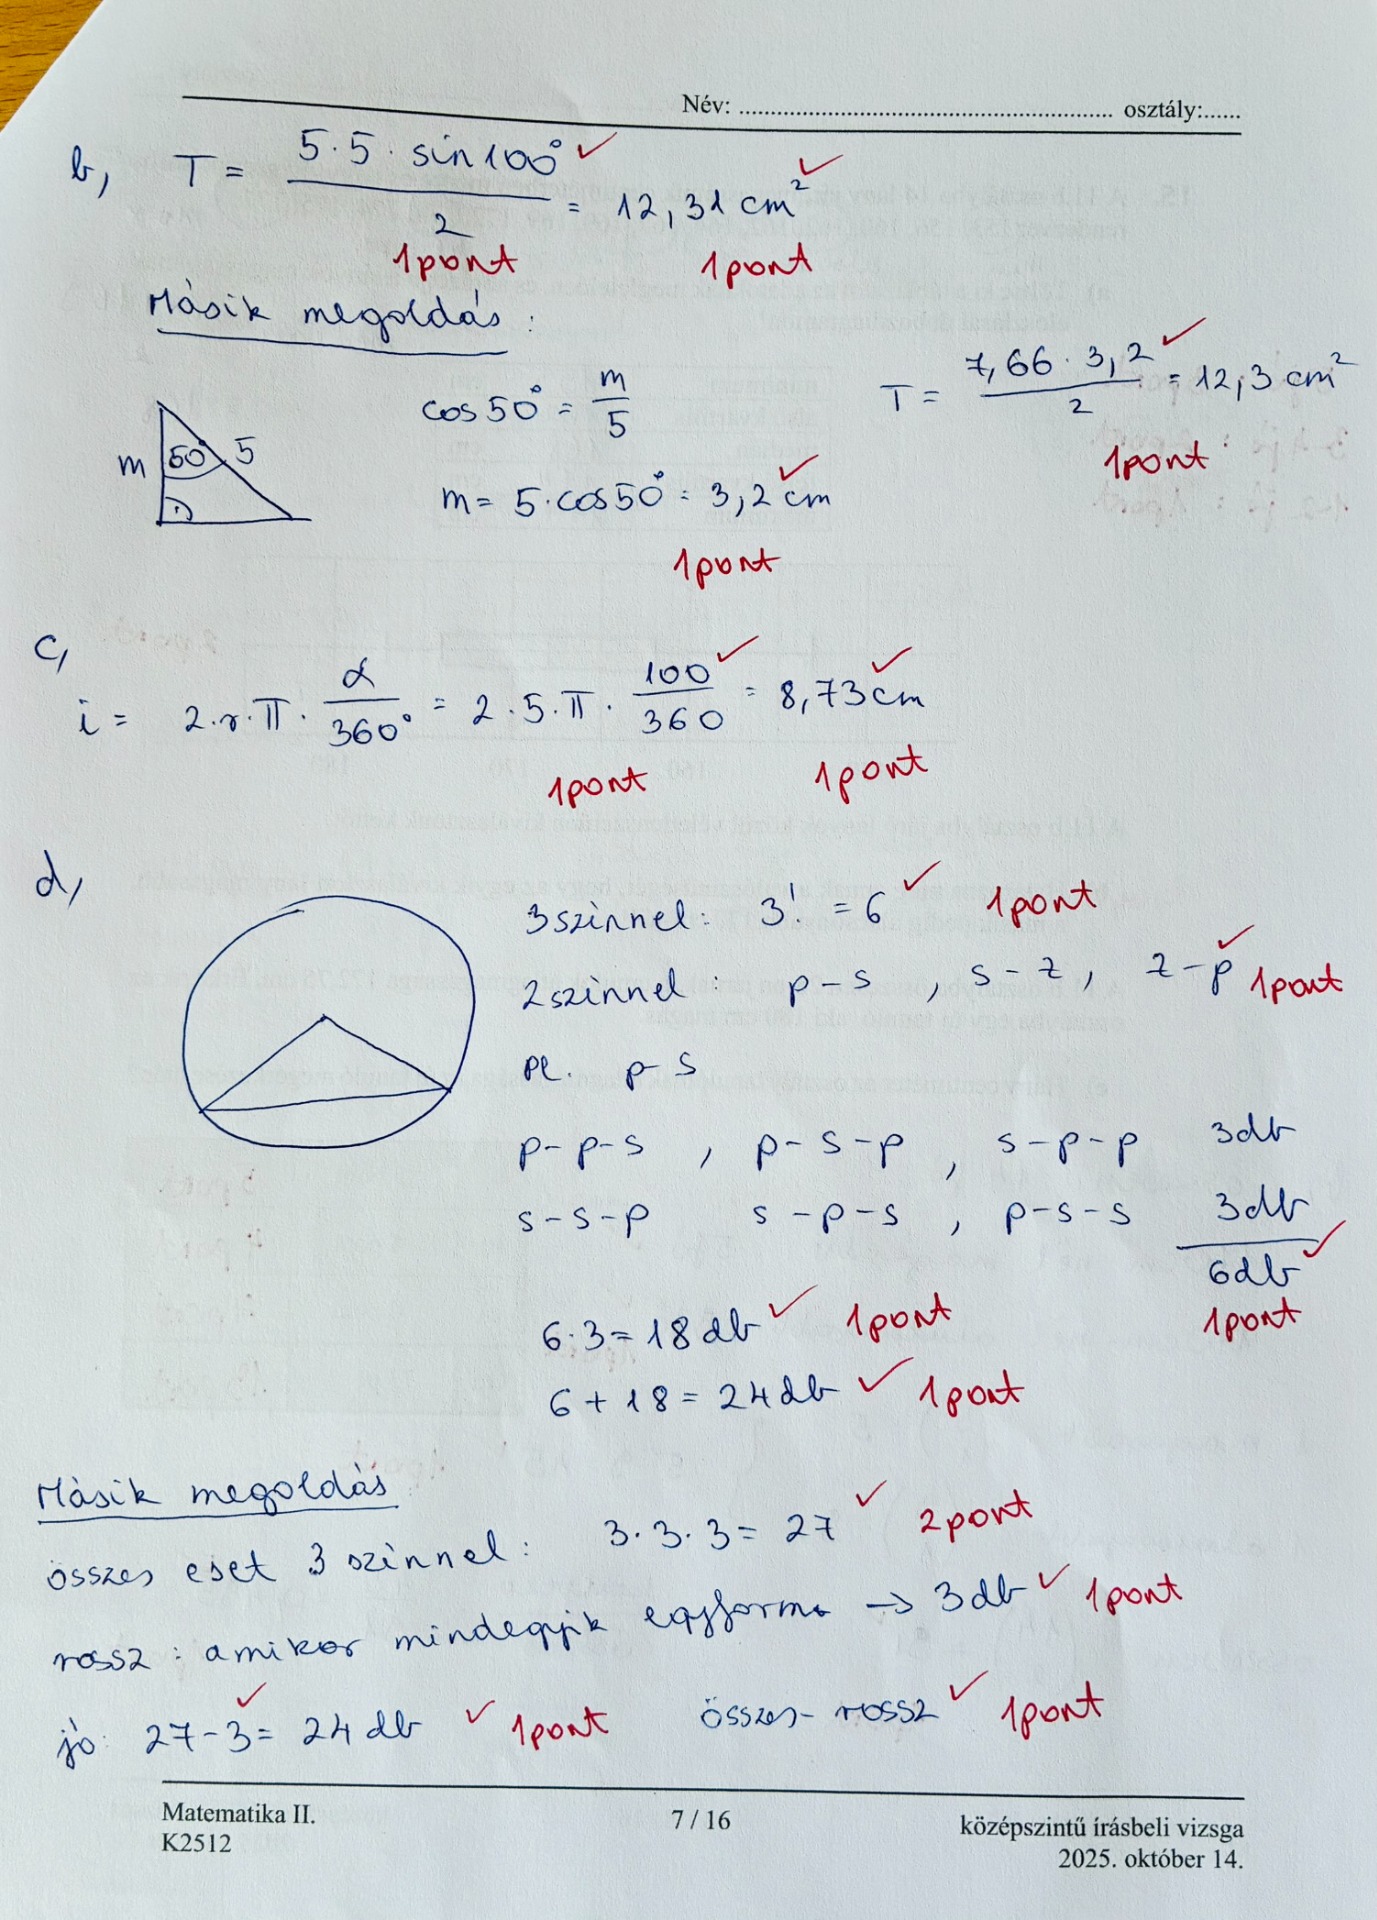 Név: ........................................ osztály:......
b, T = 5·5·sin100° / 2 = 12,31 cm²
1pont 1pont
Másik megoldás:
cos50° = m/5
T = 7,66·3,2 / 2 = 12,3 cm²
1pont
m 50° 5
m = 5·cos50° = 3,2 cm
1pont
c,
i = 2·r·π· α/360° = 2·5·π· 100/360 = 8,73 cm
1pont 1pont
d,
3 színnel: 3! = 6 1pont
2 színnel: p-s, s-z, z-p 1pont
pl. p-s
p-p-s, p-s-p, s-p-p 3db
s-s-p s-p-s, p-s-s 3db
6db
1pont
6·3 = 18 db 1pont
6 + 18 = 24 db 1pont
Másik megoldás
összes eset 3 színnel: 3·3·3 = 27 2pont
rossz: amikor mindegyik egyforma → 3 db 1pont
jó: 27-3 = 24 db 1pont összes-rossz 1pont
Matematika II. 7 / 16 középszintű írásbeli vizsga
K2512 2025. október 14.